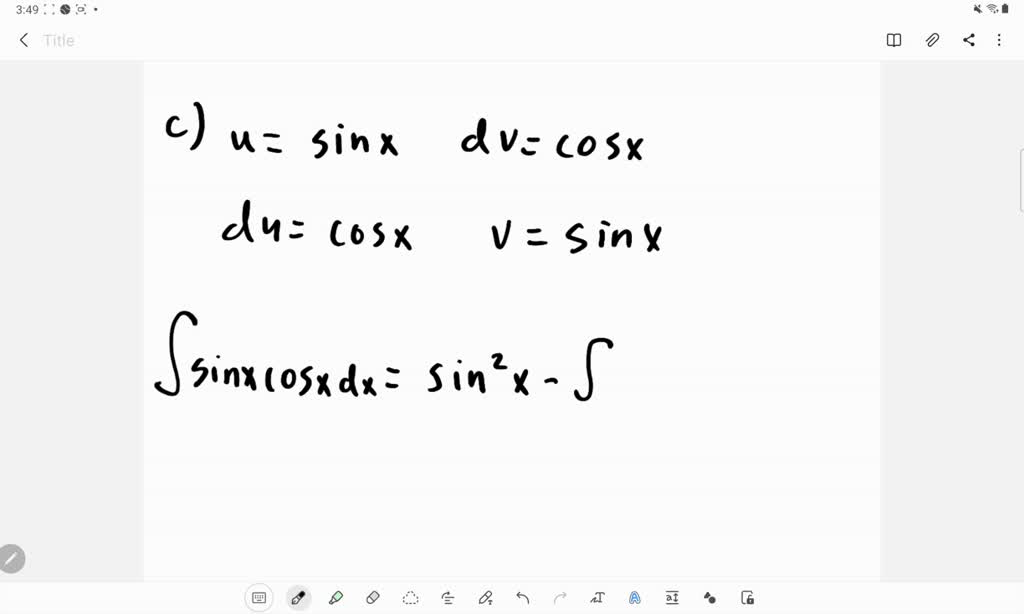 3:49
Title
c) u = sinx dv = cosx
du = cosx v = sinx
∫sinxcosxdx = sin²x - ∫